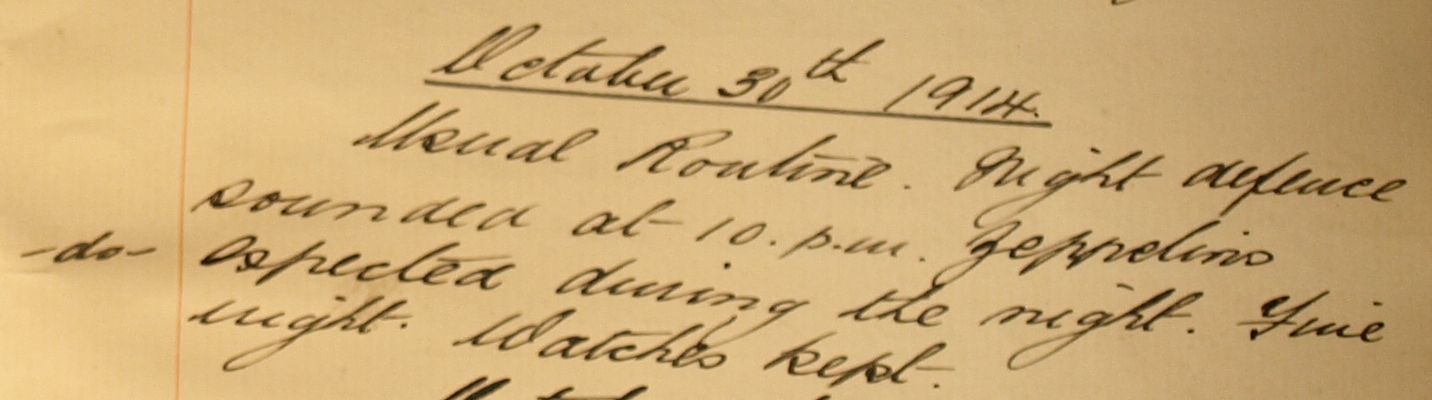 October 30th 1914.
Usual Routine. Night defence
sounded at 10. p.m. Zeppelins
-do- expected during the night. Fine
night. Watches kept.